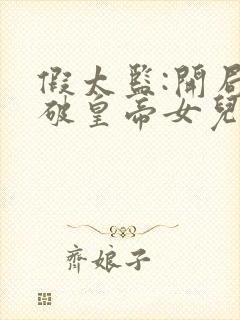 假太監:開局
破皇帝女兒
齊娘子